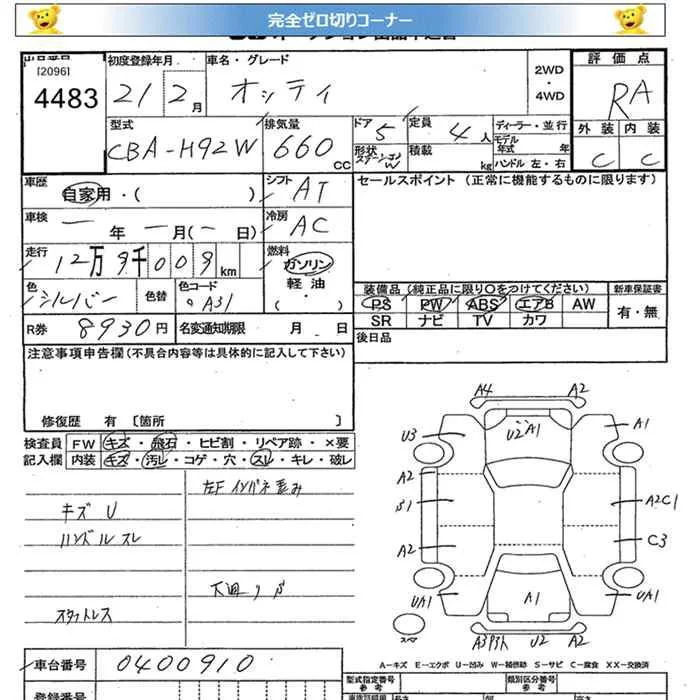 完全ゼロ切りコーナー
[2096]
4483
初度登録年月
21 2月
車名・グレード
オッティ
2WD
・
4WD
評価点
RA
外装 内装
C C
型式
CBA-H92W
排気量
660 CC
ドア
5
形状
ステーションW
定員
4人
積載
kg
ディーラー・並行
モデル年式 年
ハンドル 左・右
車歴
自家用・( )
シフト
AT
セールスポイント(正常に機能するものに限ります)
車検
一年 一月(一日)
冷房
AC
走行
12万9千009km
燃料
ガソリン
軽油
( )
色
シルバー
色替
色コード
A31
装備品(純正品に限り○をつけてください)
新車保証書
PS PW ABS エアB AW
有・無
SR ナビ TV カワ
R券
8930円
名変通知期限 月 日
後日品
注意事項申告欄(不具合内容等は具体的に記入して下さい)
修復歴 有 [箇所 ]
検査員
記入欄
FW キズ・飛石・ヒビ割・リペア跡・×要
内装 キズ・汚レ・コゲ・穴・スレ・キレ・破レ
左F インパネ歪み
キズ U
ハンドルスレ
下廻りS
スタットレス
A4 A2
U3 U2 A1 A1
A2
S1 A2C1
A2 C3
UA1 A1 UA1
スペア
U2 A2
A-キズ E-エクボ U-凹み W-補修跡 S-サビ C-腐食 XX-交換済
車台番号
0400910
型式指定番号
参考
類別区分番号
参考
登録番号